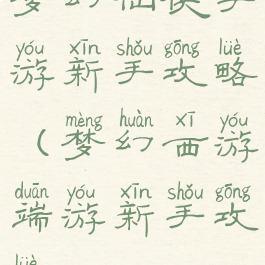 yóu xīn shǒu gōng lüè
游新手攻略
mèng huàn xī yóu
（梦幻西游
duān yóu xīn shǒu gōng
端游新手攻
lüè